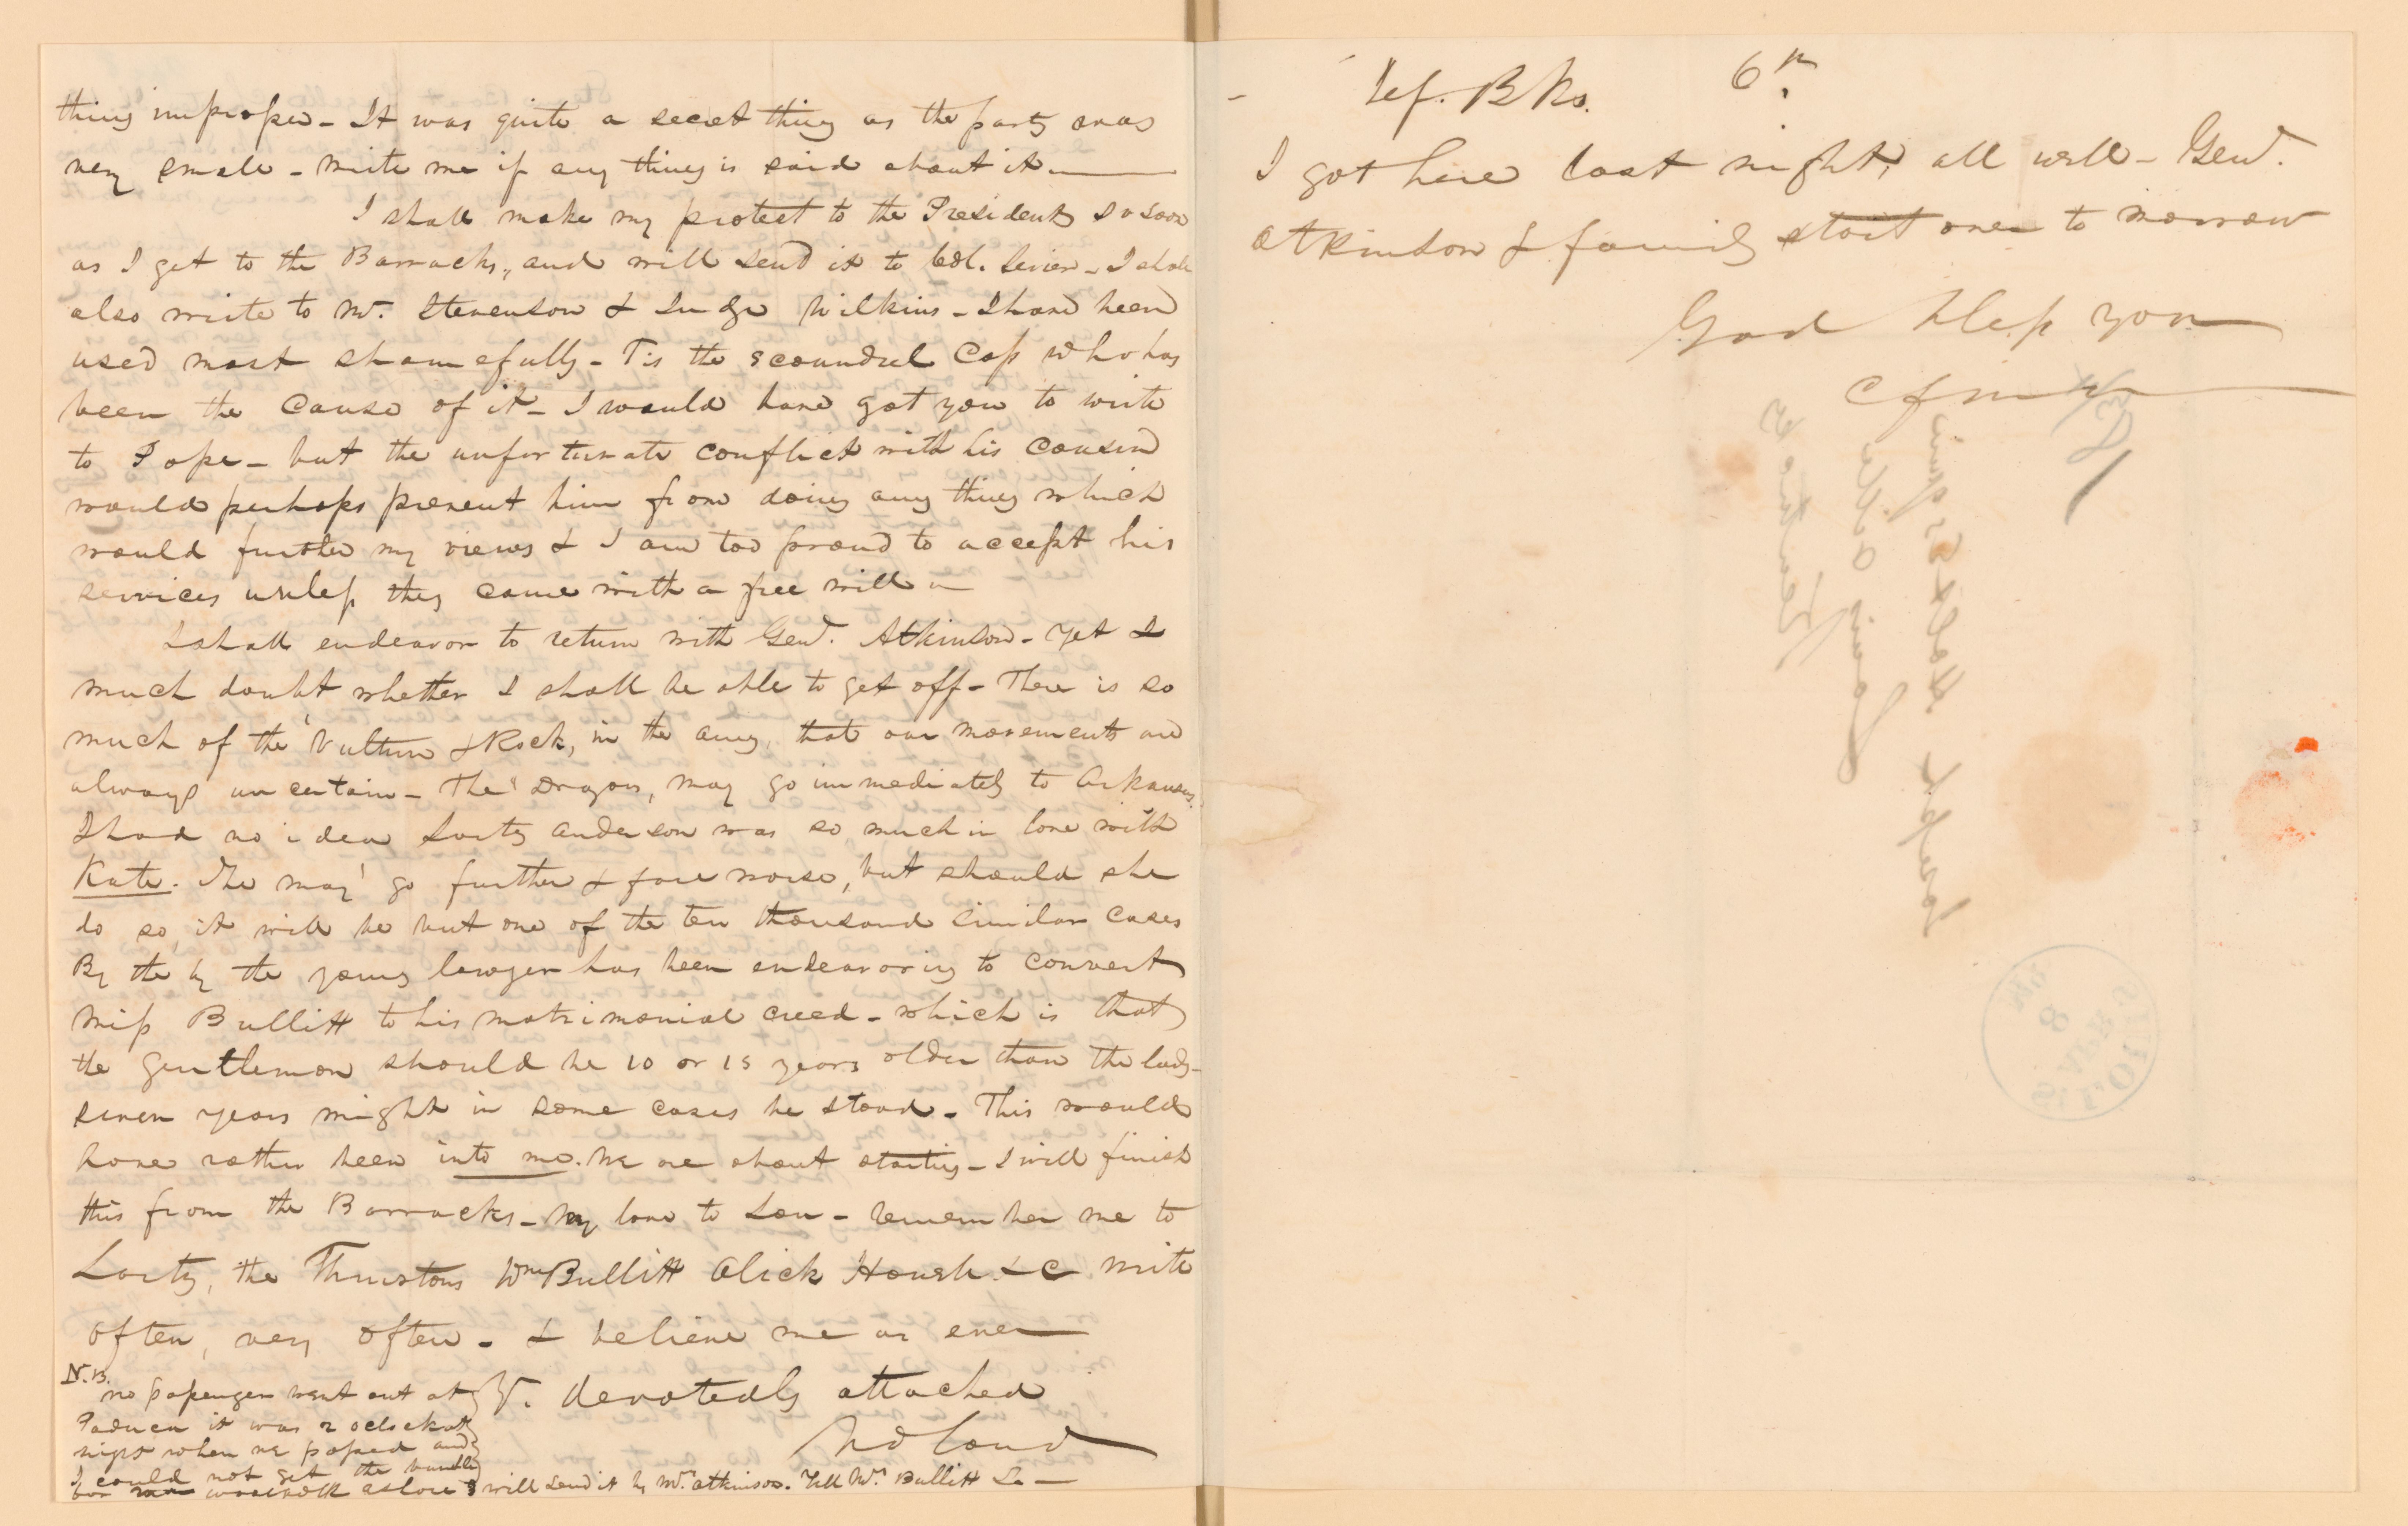 thing improper - It was quite a secret thing as the party was
very small - write me if any thing is said about it
I shall make my protest to the President so soon
as I get to the Barracks, and will send it to Col. Sevier - I shall
also write to Mr. Stevenson & Judge Wilkins - I have been
used most shamefully - Tis the scoundrel Cass who has
been the cause of it - I would have got you to write
to Pope - but the unfortunate conflict with his cousin
would perhaps prevent him from doing any thing which
would further my views & I am too proud to accept his
services unless they came with a free will -
I shall endeavor to return with Genl. Atkinson - Yet I
much doubt whether I shall be able to get off - There is so
much of the "Vulture & Rock, in the army, that our movements are
always uncertain - The "Dragons, may go immediately to Arkansas.
I had no idea Larty Anderson was so much in love with
Kate. She may go further & fare worse, but should she
do so, it will be but one of the ten thousand similar cases
By the by the young lawyer has been endeavoring to convert
Miss Bullitt to his matrimonial creed - which is that
the gentlemen should be 10 or 15 years older than the lady -
seven years might in some cases be stood - This would
have rather been into me. We are about starting - I will finish
this from the Barracks - My love to Lou - remember me to
Larty, the Thrustons Wm Bullitt Alick Hough &c write
often, very often - & believe me as ever
Yr. devotedly attached
N.B.
no passenger went out at
Paduca it was 2 oclock at
night when we passed and
I could not get the bundle
will send it by Mrs. Atkinson. Tell Mrs. Bullitt So -
Jef. Bks. 6th.
I got here last night, all well - Genl.
Atkinson & family start over to morrow
God bless you